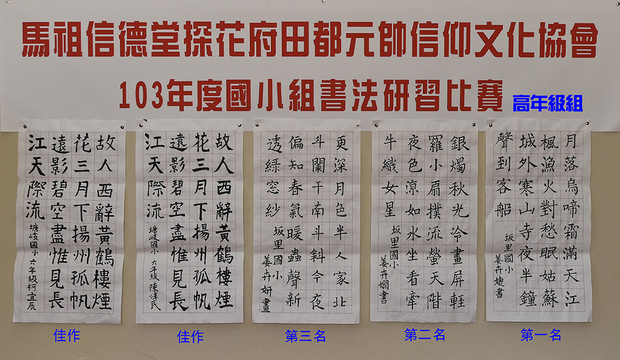 馬祖信德堂探花府田都元帥信仰文化協會
103年度國小組書法研習比賽 高年級組
月落烏啼霜滿天江
楓漁火對愁眠姑蘇
城外寒山寺夜半鐘
聲到客船
坂里國小
姜卉婕書
第一名
銀燭秋光冷畫屏輕
羅小扇撲流螢天階
夜色涼如水坐看牽
牛織女星
坂里國小
姜卉嫺書
第二名
更深月色半人家北
斗闌干南斗斜今夜
偏知春氣暖蟲聲新
透綠窗紗
坂里國小
姜卉妍書
第三名
故人西辭黃鶴樓煙
花三月下揚州孤帆
遠影碧空盡惟見長
江天際流
塘岐國小 六年級
佳作
故人西辭黃鶴樓煙
花三月下揚州孤帆
遠影碧空盡惟見長
江天際流
塘岐國小 六年級柯宜辰
佳作